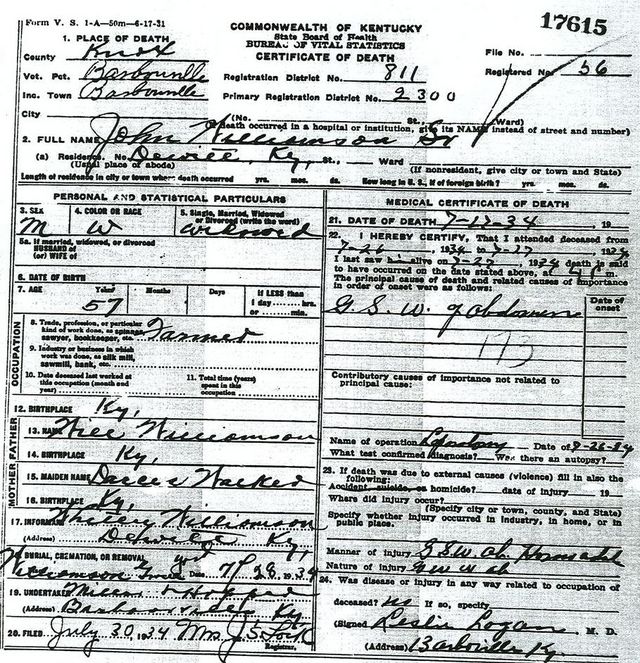 Form V. S. 1-A—50m—6-17-31
COMMONWEALTH OF KENTUCKY
State Board of Health
BUREAU OF VITAL STATISTICS
CERTIFICATE OF DEATH
17615
File No.
Registered No. 56
1. PLACE OF DEATH
County Knox
Vot. Pct. Barbourville
Inc. Town Barbourville
Registration District No. 811
Primary Registration District No. 2300
City (No. St., Ward)
(If death occurred in a hospital or institution, give its NAME instead of street and number)
2. FULL NAME John Williamson Sr
(a) Residence. No. Dewitt, Ky, St., Ward
(Usual place of abode) (If nonresident, give city or town and State)
Length of residence in city or town where death occurred yrs. mos. ds. How long in U. S., if of foreign birth? yrs. mos. ds.
PERSONAL AND STATISTICAL PARTICULARS
3. SEX M
4. COLOR OR RACE W
5. Single, Married, Widowed or Divorced (write the word) Widowed
5a. If married, widowed, or divorced
HUSBAND of
(or) WIFE of
6. DATE OF BIRTH
7. AGE 57 Months Days If LESS than
1 day hrs.
or min.
OCCUPATION
8. Trade, profession, or particular
kind of work done, as spinner,
sawyer, bookkeeper, etc. Farmer
9. Industry or business in which
work was done, as silk mill,
sawmill, bank, etc.
10. Date deceased last worked at
this occupation (month and
year)
11. Total time (years)
spent in this
occupation
12. BIRTHPLACE Ky,
FATHER
13. NAME Will Williamson
14. BIRTHPLACE Ky,
MOTHER
15. MAIDEN NAME Walker
16. BIRTHPLACE Ky,
17. INFORMANT Williamson
(Address) Dewitt Ky,
18. BURIAL, CREMATION, OR REMOVAL
Williamson Grave Date 7/28, 1934
19. UNDERTAKER Hopper
(Address) Barbourville Ky
20. FILED July 30 1934 Mrs J S Lock
Registrar.
MEDICAL CERTIFICATE OF DEATH
21. DATE OF DEATH 34, 19
22. I HEREBY CERTIFY, That I attended deceased from
7-26, 1934 to 7-27, 1934
I last saw him alive on 7-27 1934 death is said
to have occurred on the date stated above, at m.
The principal cause of death and related causes of importance
in order of onset were as follows:
Date of
onset
G. S. W. of abdomen
173
Contributory causes of importance not related to
principal cause:
Name of operation Date of
What test confirmed diagnosis? Was there an autopsy?
23. If death was due to external causes (violence) fill in also the
following:
Accident, suicide, or homicide? date of injury 19
Where did injury occur?
(Specify city or town, county, and State)
Specify whether injury occurred in industry, in home, or in
public place.
Manner of injury GSW ab.
Nature of injury
24. Was disease or injury in any way related to occupation of
deceased? no If so, specify
(Signed Leslie Logan, M. D.
(Address) Barbourville Ky.